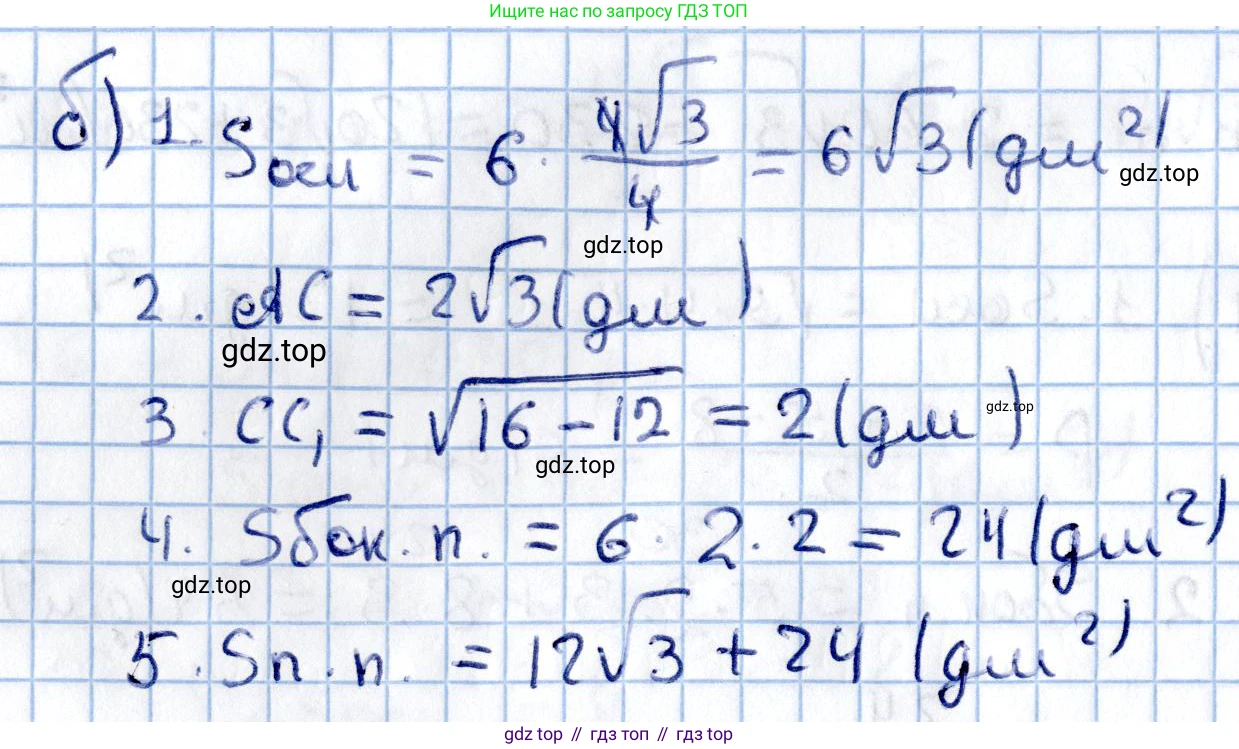 Ищите нас по запросу ГДЗ ТОП
б) 1. Sосн = 6 · 4√3/4 = 6√3 (дм²)
gdz.top
gdz.top
2. AC = 2√3 (дм)
gdz.top
3 CC₁ = √16 - 12 = 2 (дм)
gdz.top
gdz.top
4. Sбок. п. = 6 · 2 · 2 = 24 (дм²)
gdz.top
5. Sп. п. = 12√3 + 24 (дм²)
gdz top // гдз топ // gdz top